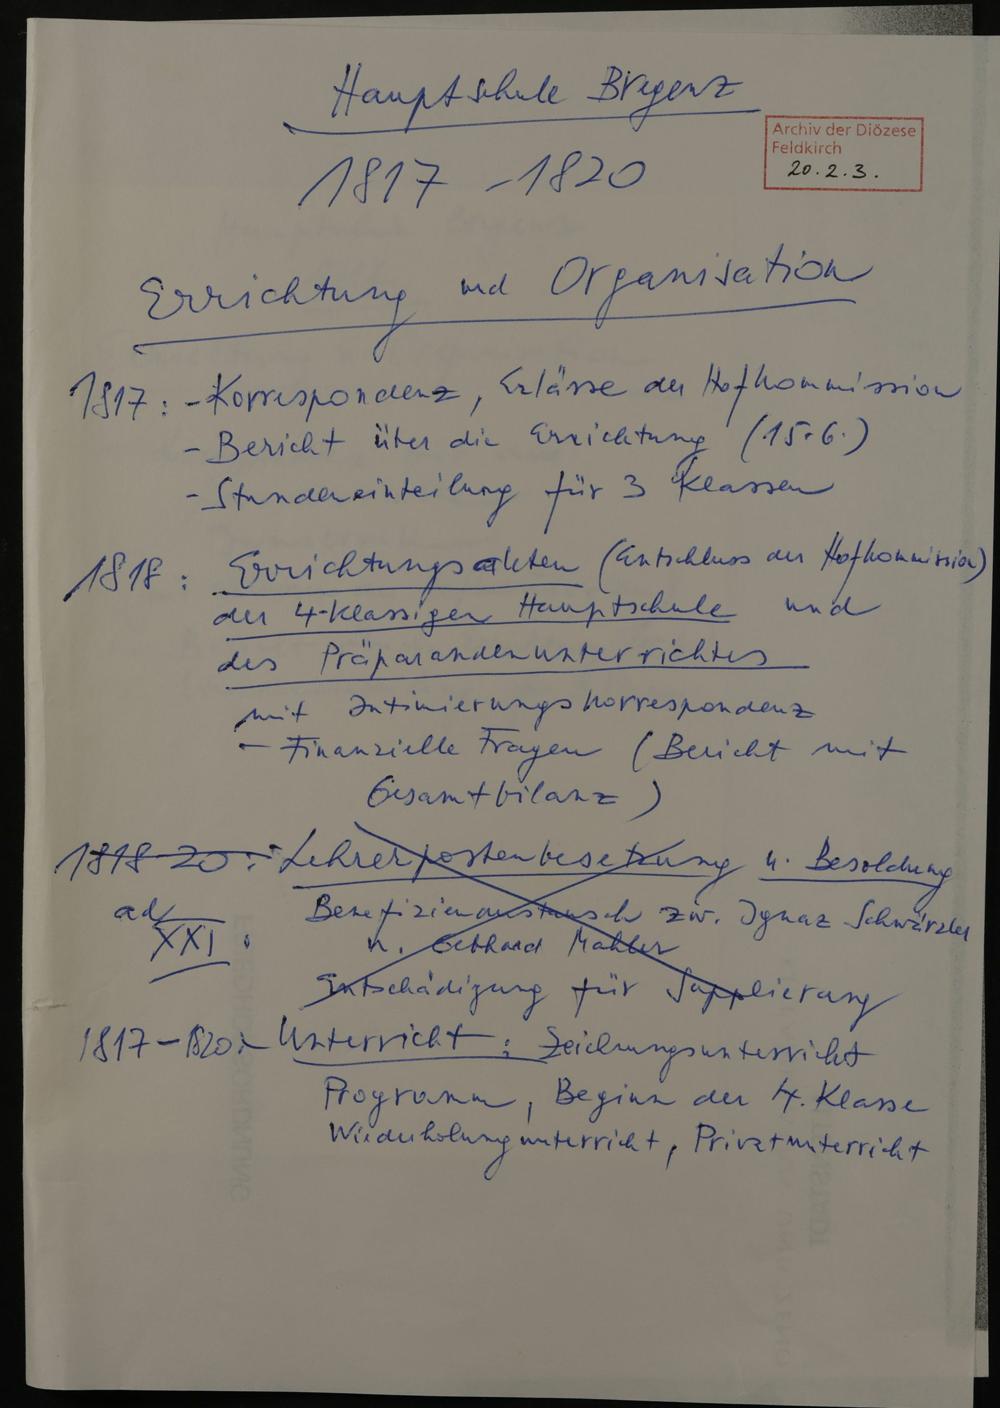 Hauptschule Bregenz
Archiv der Diözese
Feldkirch
20.2.3.
1817 - 1820
Errichtung und Organisation
1817: - Korrespondenz, Erlässe der Hofkommission
- Bericht über die Errichtung (15.6.)
- Stundeneinteilung für 3 Klassen
1818: Errichtungsakten (Entschluss der Hofkommission)
der 4-klassigen Hauptschule und
des Präparandenunterrichtes
mit Intimierungskorrespondenz
- Finanzielle Fragen (Bericht mit
Gesamtbilanz)
1818-20: Lehrerpostenbesetzung u. Besoldung
ad Benefizienaustausch zw. Ignaz Schwärzler
XXI: u. Gebhard Mahler
Entschädigung für Supplierung
1817-1820: - Unterricht: Zeichnungsunterricht
Programm, Beginn der 4. Klasse
Wiederholungsunterricht, Privatunterricht